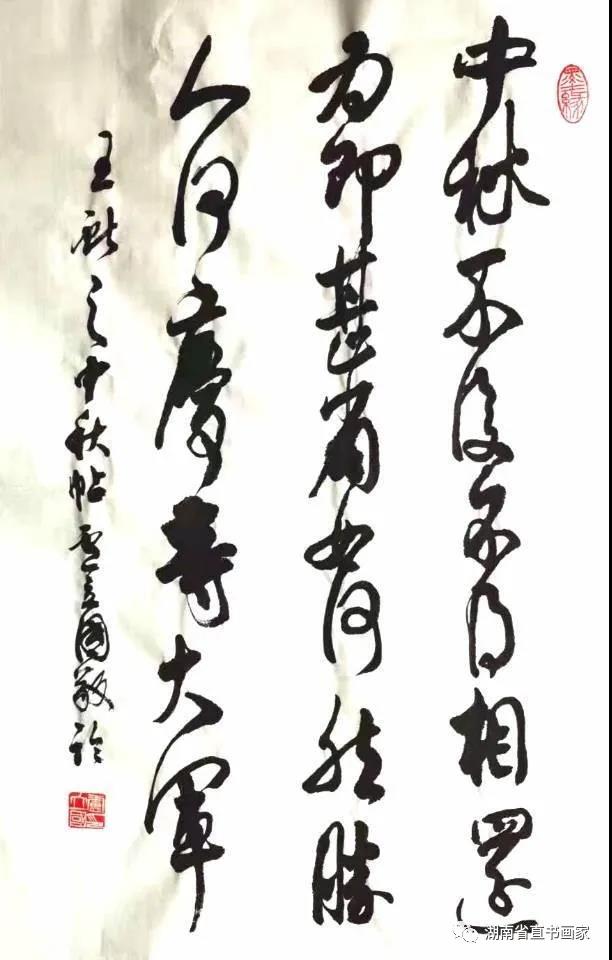 墨緣
中秋不復不得相還
为即甚省如何然勝
人何慶等大軍
王献之中秋帖 立國敬临
湖南省直书画家